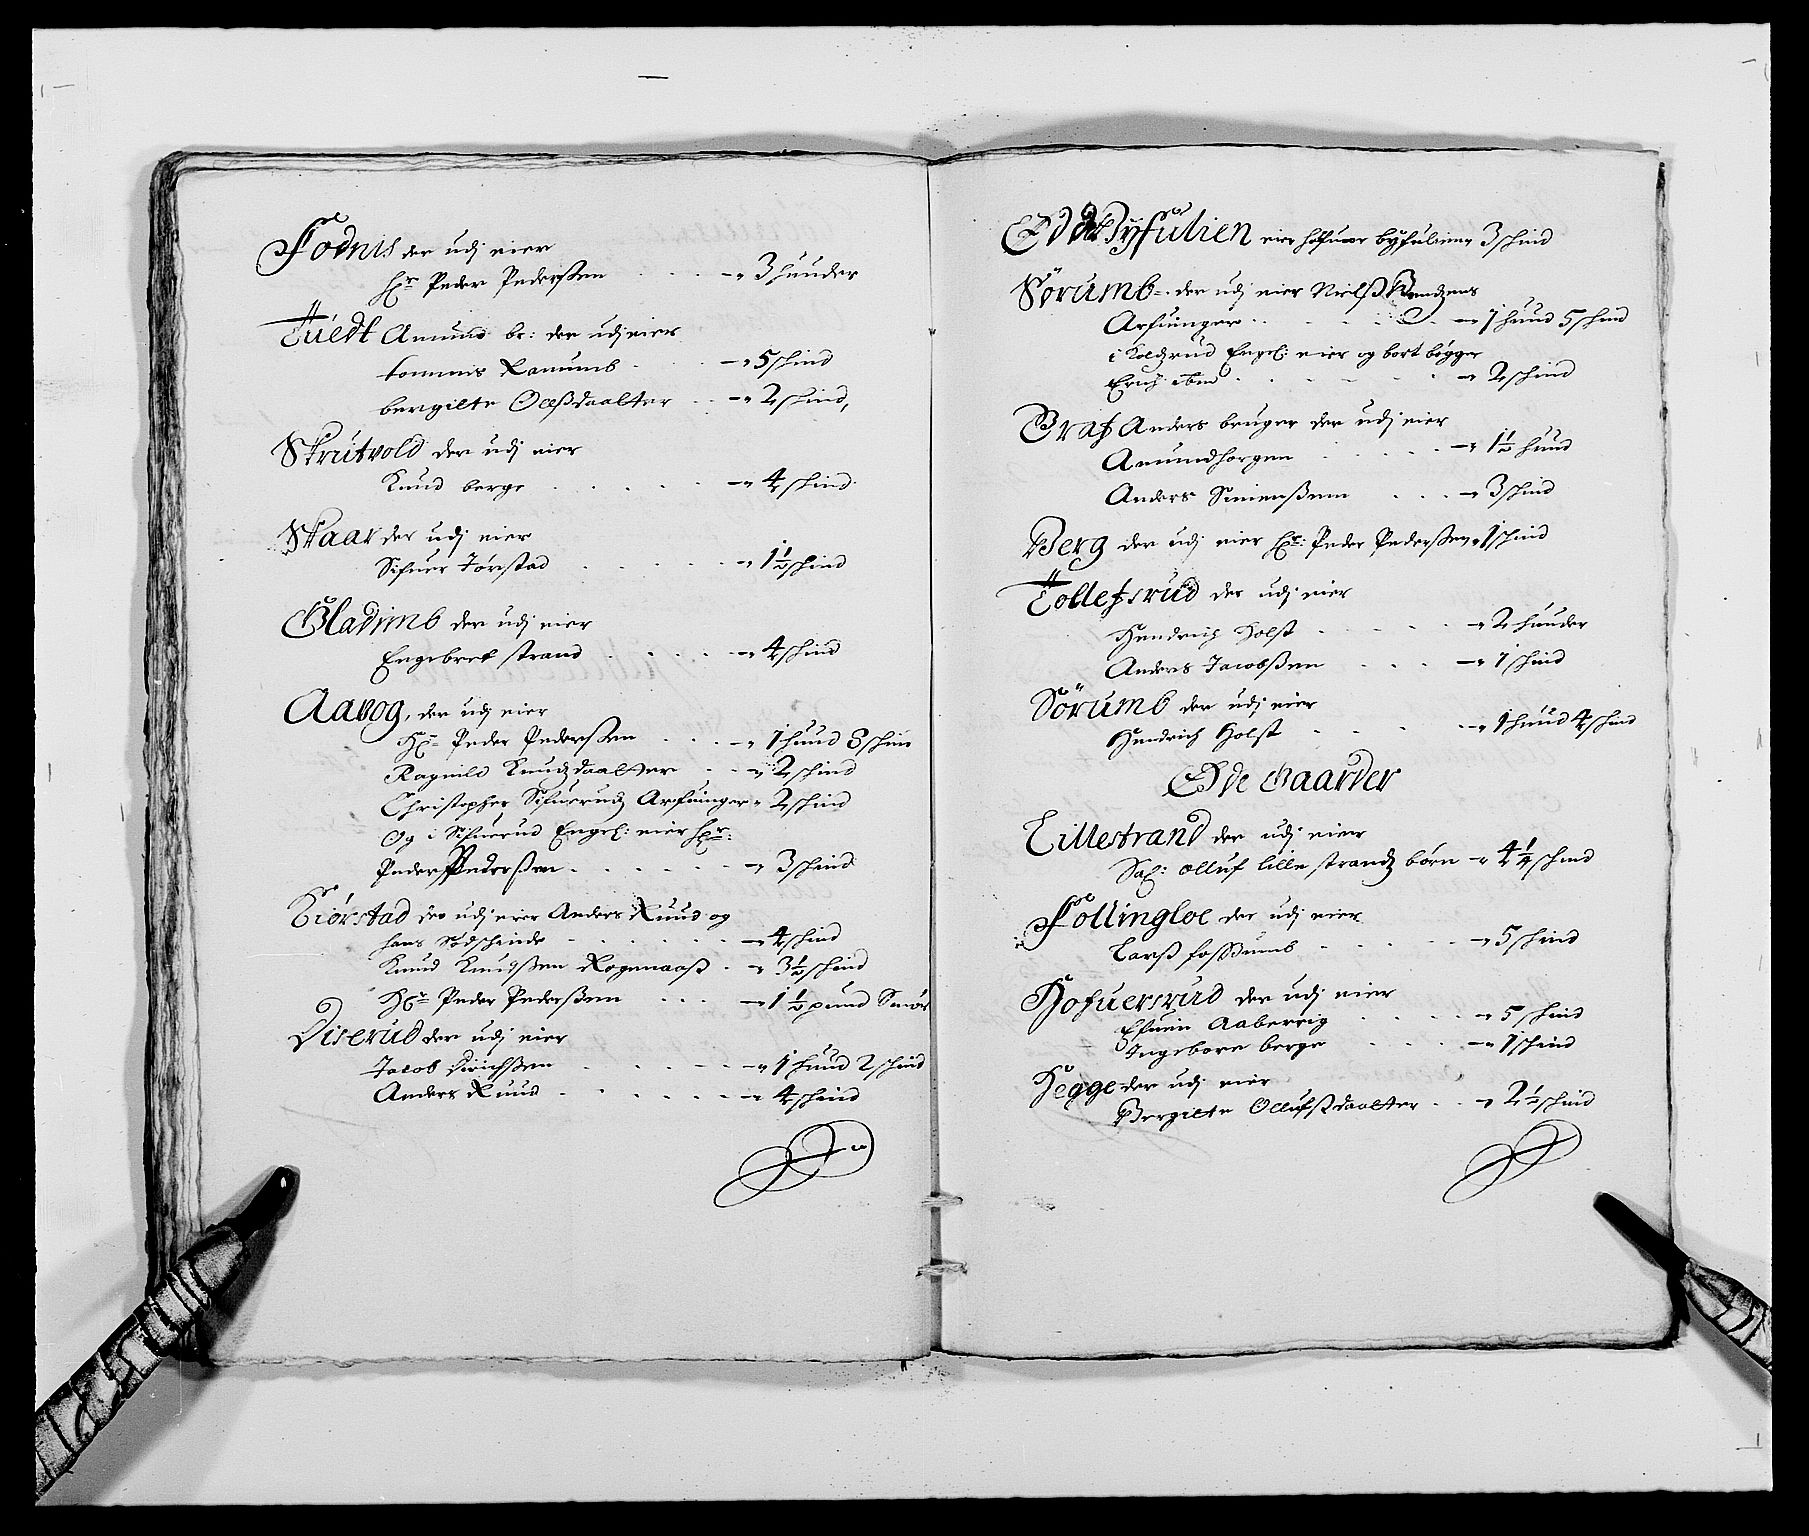 Fodnis der udj eier
Hr Peder Pedersen - - - 3 hunder
Tuedt Amund br: der udj eier
tommis Ramumb - - 5 schind
bergilte Oelsdaatter - - 2 schind,
Skrutvold der udj eier
Knud berge - - - 4 schind.
Skaar der udj eier
Sifuer Tørstad - - - 1½ schind
Gladimb der udj eier
Engebret strand - - - 4 schind
Aavog, der udj eier
Hr Peder Pedersen - - - 1 hund 8 schin
Ragnild Knudsdaatter - - 2 schind
Christopher Sifuerudz Arfuinger - 2 schind
Og i Sifuerud Engel: eier Hr:
Peder Pedersen - - - 3 schind
Kiørstad der udj eier Anders Ruud og
hans Sødschinde - - - 4 schind
Knud Knudsen Rogenaas - 3½ schind
Hr Peder Pedersen - - - 1½ pund Smør
Diserud der udj eier
Jacob Dirichsen - - - 1 hund 2 schind
Anders Ruud - - - 4 schind
Byfulien eier byfuliene 3 schind
Sørumb - der udj eier Niels
Arfuinger - - - 1 hund 5 schind
i Koldzrud Engel: eier og bort bøgger
Erich - - - 2 schind
Braf Anders bruger der udj eier
Amundhorgen - - - 1½ hund
Anders Simensen - - - 3 schind
Berg der udj eier Hr: Peder Pedersen 1 schind
Tollefsrud der udj eier
Hendrich Holst - - - 2 hunder
Anders Jacobsen - - - 1 schind
Sørumb der udj eier
Hendrich Holst - - - 1 hund 4 schind
Øde Gaarder
Lillestrand der udj eier
Sal: olluf lille strandz børn - 4¼ schind
Follingloe der udj eier
Lars fossumb - - - 5 schind
Hofuersrud der udj eier
Efuen Aabereig - - - 5 schind
Ingeborre berge - - - 1 schind
Hegge der udj eier
Bergilte Ollufsdaatter - - 2½ schind